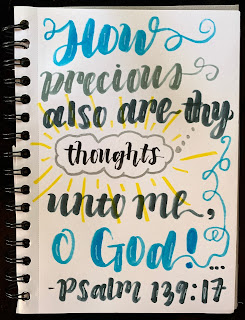 How
precious
also are thy
thoughts
unto me,
O God!...
-Psalm 139:17